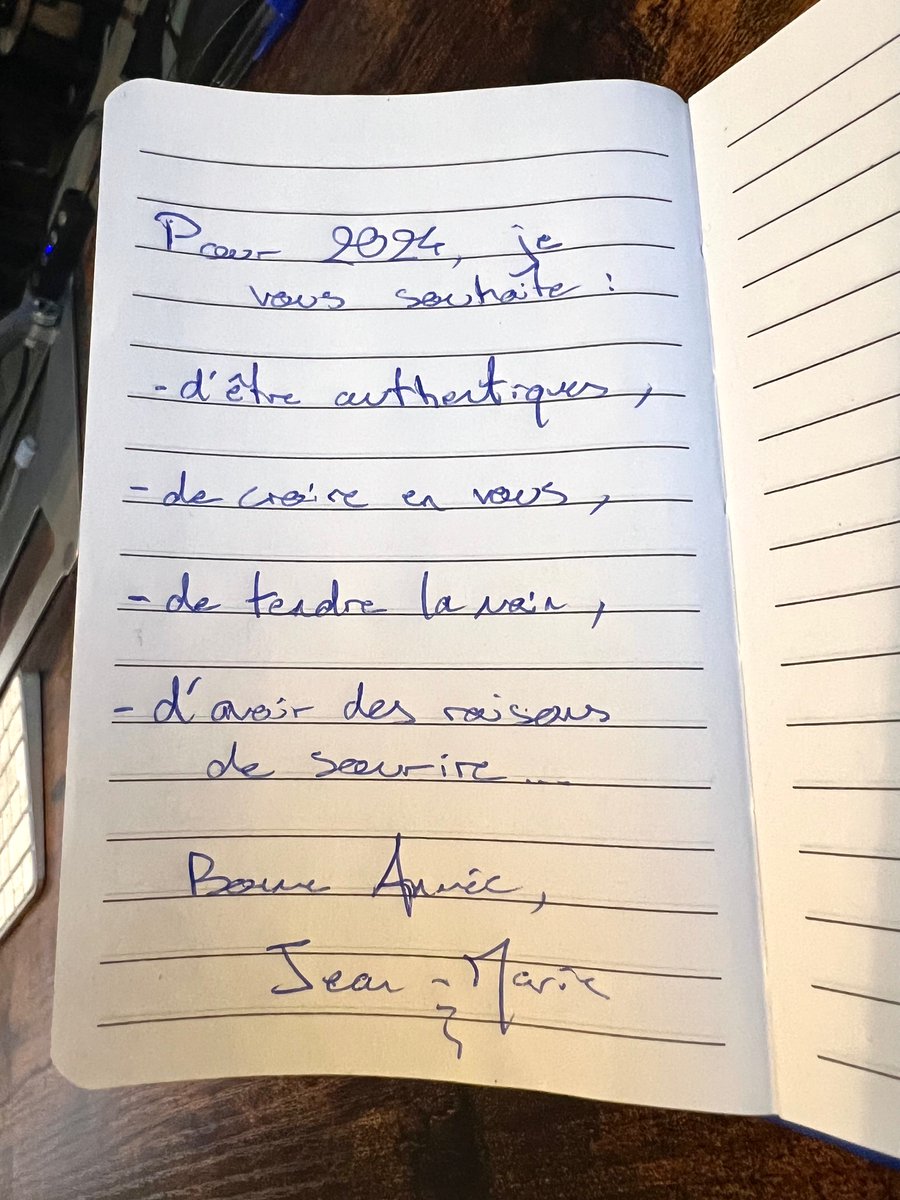 Pour 2024, je
vous souhaite :
- d'être authentiques,
- de croire en vous,
- de tendre la main,
- d'avoir des raisons
de sourire...
Bonne Année,
Jean-Marie